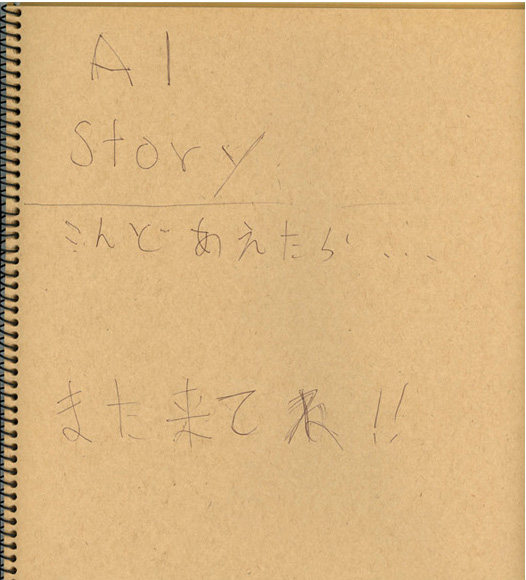 AI
Story
こんど あえたら...
また来てね!!